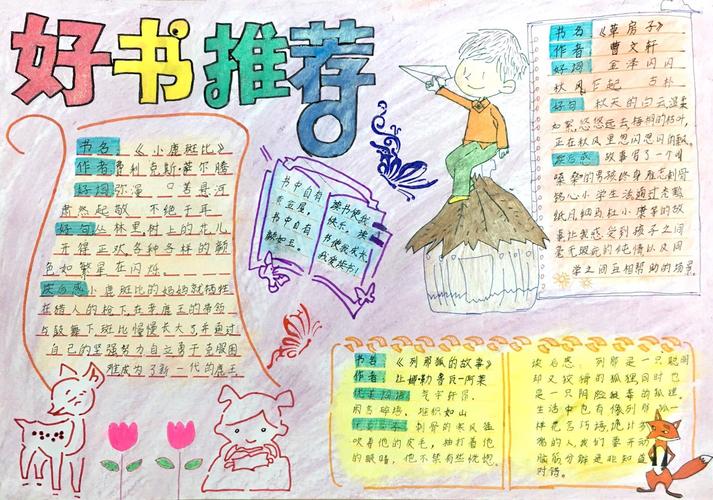 好书推荐
书名：《小鹿斑比》
作者费利克斯·萨尔腾
好词弥漫 口若悬河
肃然起敬 不绝于耳
好句丛林里树上的花儿
开得正欢各种各样的颜
色如繁星在闪烁。
读后感小鹿斑比的妈妈就牺牲
在猎人的枪下在老鹿王的带领
与鼓舞下斑比慢慢长大了并通过
自己的坚强努力自立勇于克服困
难成为了新一代的鹿王
书中自有
黄金屋，
书中自有
颜如玉。
读书使我
快乐，读
书使我成长
我爱读书！
书名《草房子》
作者 曹文轩
好词 金泽闪闪
秋风乍起 古朴
好句 秋天的白云温柔
如絮悠悠远去梧桐的枯叶，
正在秋风里忽闪忽闪的飘。
读后感 故事写了一个
男孩终身难忘刻骨
铭心小学生活通过秃鹤
纸月细马杜小康等的故
事让我感受到孩子之间
毫无瑕疵的纯情以及同
学之间互相帮助的场景
书名 《列那狐的故事》
作者：让姆勒鲁瓦-阿莱
气宇轩昂、
堆积如山
刺骨的寒风猛
吹着他的皮毛，抽打着他
的眼睛，他不禁有些恍惚
读后感：列那是一只聪明
却又狡猾的狐狸，同时也
是一只阴险狠毒的狐狸，
生活中也有像列那一
样花言巧语，诡计多
端的人，我们要开动
脑筋分解是非知道
对错。